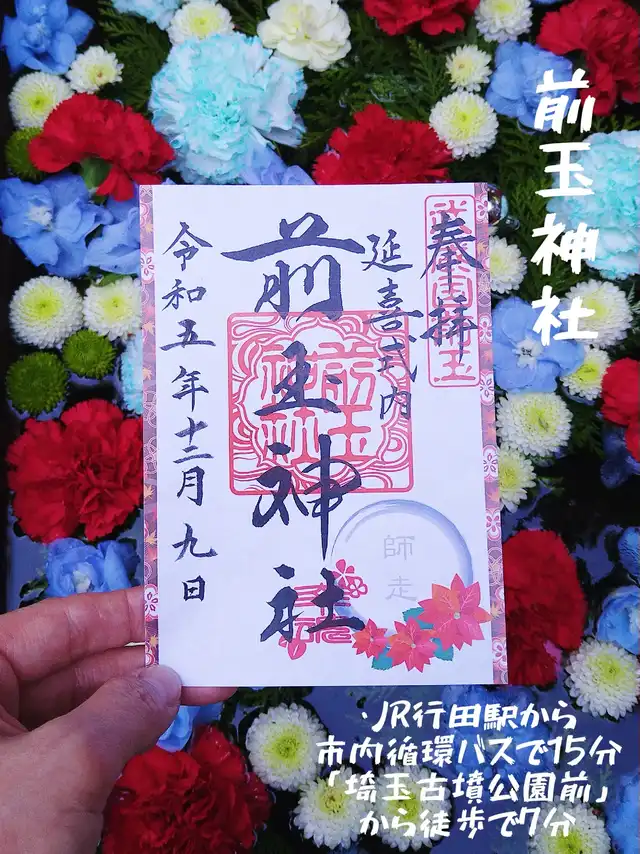 前玉神社
奉拝
延喜式内
前玉神社
令和五年十二月九日
前玉神社
師走
・JR行田駅から
市内循環バスで15分
「埼玉古墳公園前」
から徒歩で7分